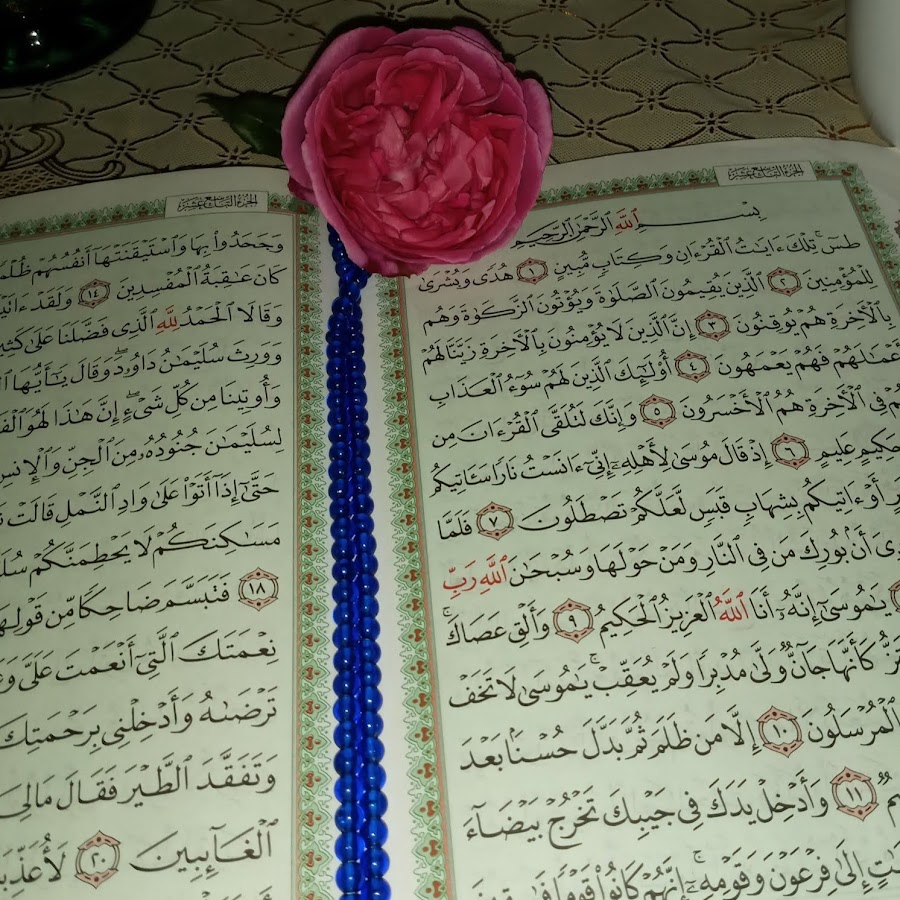 الجزء التاسع عشر
بِسْمِ ٱللَّهِ ٱلرَّحْمَٰنِ ٱلرَّحِيمِ
طسٓ ۚ تِلْكَ ءَايَٰتُ ٱلْقُرْءَانِ وَكِتَابٍ مُّبِينٍ ١ هُدًى وَبُشْرَىٰ
لِلْمُؤْمِنِينَ ٢ ٱلَّذِينَ يُقِيمُونَ ٱلصَّلَوٰةَ وَيُؤْتُونَ ٱلزَّكَوٰةَ وَهُم
بِٱلْءَاخِرَةِ هُمْ يُوقِنُونَ ٣ إِنَّ ٱلَّذِينَ لَا يُؤْمِنُونَ بِٱلْءَاخِرَةِ زَيَّنَّا لَهُمْ
أَعْمَٰلَهُمْ فَهُمْ يَعْمَهُونَ ٤ أُو۟لَٰٓئِكَ ٱلَّذِينَ لَهُمْ سُوٓءُ ٱلْعَذَابِ
وَهُمْ فِى ٱلْءَاخِرَةِ هُمُ ٱلْأَخْسَرُونَ ٥ وَإِنَّكَ لَتُلَقَّى ٱلْقُرْءَانَ مِن
حَكِيمٍ عَلِيمٍ ٦ إِذْ قَالَ مُوسَىٰ لِأَهْلِهِۦٓ إِنِّىٓ ءَانَسْتُ نَارًا سَـَٔاتِيكُم
أَوْ ءَاتِيكُم بِشِهَابٍ قَبَسٍ لَّعَلَّكُمْ تَصْطَلُونَ ٧ فَلَمَّا
أَنۢ بُورِكَ مَن فِى ٱلنَّارِ وَمَنْ حَوْلَهَا وَسُبْحَٰنَ ٱللَّهِ رَبِّ
يَٰمُوسَىٰٓ إِنَّهُۥٓ أَنَا ٱللَّهُ ٱلْعَزِيزُ ٱلْحَكِيمُ ٩ وَأَلْقِ عَصَاكَ ۚ
كَأَنَّهَا جَآنٌّ وَلَّىٰ مُدْبِرًا وَلَمْ يُعَقِّبْ ۚ يَٰمُوسَىٰ لَا تَخَفْ
ٱلْمُرْسَلُونَ ١٠ إِلَّا مَن ظَلَمَ ثُمَّ بَدَّلَ حُسْنًۢا بَعْدَ
١١ وَأَدْخِلْ يَدَكَ فِى جَيْبِكَ تَخْرُجْ بَيْضَآءَ
إِلَىٰ فِرْعَوْنَ وَقَوْمِهِۦٓ ۚ إِنَّهُمْ كَانُوا۟ قَوْمًا
الجزء التاسع عشر
وَجَحَدُوا۟ بِهَا وَٱسْتَيْقَنَتْهَآ أَنفُسُهُمْ
كَانَ عَٰقِبَةُ ٱلْمُفْسِدِينَ ١٤ وَلَقَدْ
وَقَالَا ٱلْحَمْدُ لِلَّهِ ٱلَّذِى فَضَّلَنَا عَلَىٰ
وَوَرِثَ سُلَيْمَٰنُ دَاوُۥدَ ۖ وَقَالَ يَٰٓأَيُّهَا
وَأُوتِينَا مِن كُلِّ شَىْءٍ ۖ إِنَّ هَٰذَا لَهُوَ
لِسُلَيْمَٰنَ جُنُودُهُۥ مِنَ ٱلْجِنِّ وَٱلْإِنسِ
حَتَّىٰٓ إِذَآ أَتَوْا۟ عَلَىٰ وَادِ ٱلنَّمْلِ قَالَتْ
مَسَٰكِنَكُمْ لَا يَحْطِمَنَّكُمْ
١٨ فَتَبَسَّمَ ضَاحِكًا مِّن قَوْلِهَا
نِعْمَتَكَ ٱلَّتِىٓ أَنْعَمْتَ عَلَىَّ
تَرْضَىٰهُ وَأَدْخِلْنِى بِرَحْمَتِكَ
وَتَفَقَّدَ ٱلطَّيْرَ فَقَالَ مَا لِىَ
ٱلْغَآئِبِينَ ٢٠